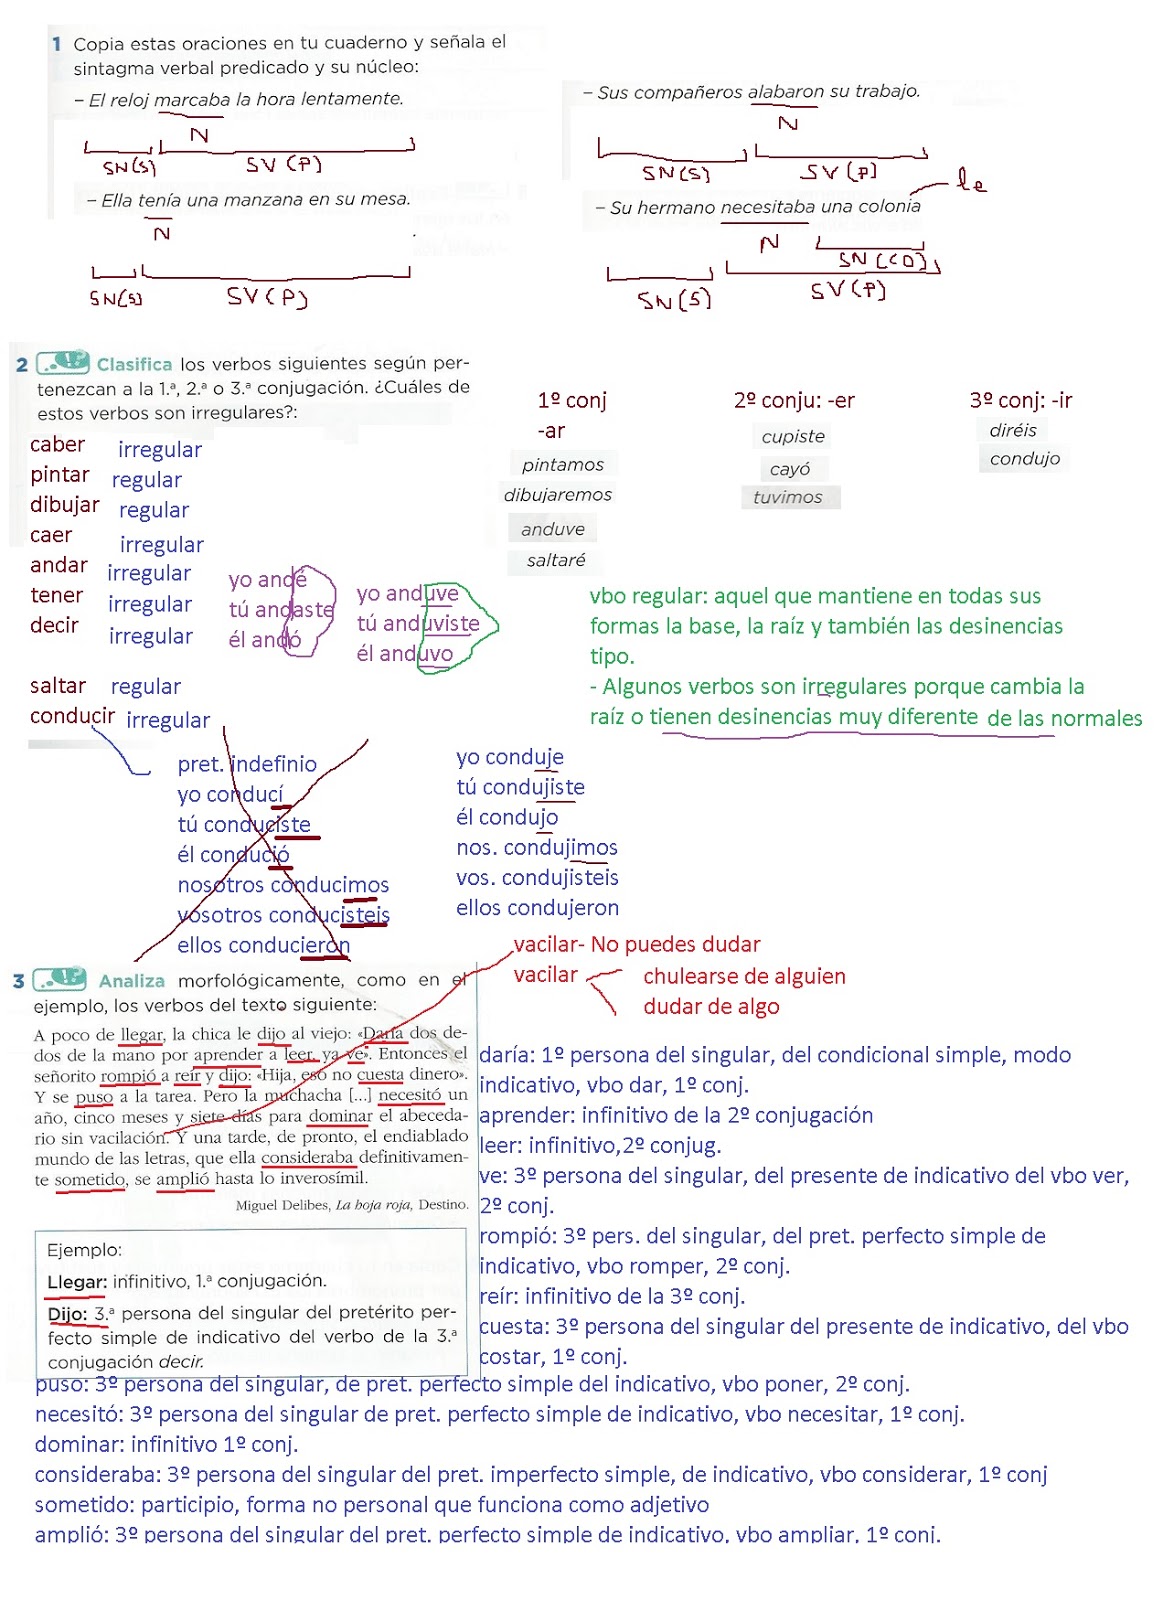 1 Copia estas oraciones en tu cuaderno y señala el
sintagma verbal predicado y su núcleo:
– El reloj marcaba la hora lentamente.
N
SN(S) SV (P)
– Ella tenía una manzana en su mesa.
N
SN(S) SV (P)
– Sus compañeros alabaron su trabajo.
N
SN(S) SV (P)
le
– Su hermano necesitaba una colonia
N SN (CD)
SN(S) SV (P)
2 Clasifica los verbos siguientes según per-
tenezcan a la 1.ª, 2.ª o 3.ª conjugación. ¿Cuáles de
estos verbos son irregulares?:
caber irregular
pintar regular
dibujar regular
caer irregular
andar irregular
tener irregular
decir irregular
saltar regular
conducir irregular
1º conj
-ar
pintamos
dibujaremos
anduve
saltaré
2º conju: -er
cupiste
cayó
tuvimos
3º conj: -ir
diréis
condujo
yo andé
tú andaste
él andó
yo anduve
tú anduviste
él anduvo
vbo regular: aquel que mantiene en todas sus
formas la base, la raíz y también las desinencias
tipo.
- Algunos verbos son irregulares porque cambia la
raíz o tienen desinencias muy diferente de las normales
pret. indefinio
yo conducí
tú conduciste
él condució
nosotros conducimos
vosotros conducisteis
ellos conducieron
yo conduje
tú condujiste
él condujo
nos. condujimos
vos. condujisteis
ellos condujeron
vacilar- No puedes dudar
vacilar chulearse de alguien
dudar de algo
3 Analiza morfológicamente, como en el
ejemplo, los verbos del texto siguiente:
A poco de llegar, la chica le dijo al viejo: «Daría dos de-
dos de la mano por aprender a leer, ya ve». Entonces el
señorito rompió a reír y dijo: «Hija, eso no cuesta dinero».
Y se puso a la tarea. Pero la muchacha [...] necesitó un
año, cinco meses y siete días para dominar el abeceda-
rio sin vacilación. Y una tarde, de pronto, el endiablado
mundo de las letras, que ella consideraba definitivamen-
te sometido, se amplió hasta lo inverosímil.
Miguel Delibes, La hoja roja, Destino.
Ejemplo:
Llegar: infinitivo, 1.ª conjugación.
Dijo: 3.ª persona del singular del pretérito per-
fecto simple de indicativo del verbo de la 3.ª
conjugación decir.
daría: 1º persona del singular, del condicional simple, modo
indicativo, vbo dar, 1º conj.
aprender: infinitivo de la 2º conjugación
leer: infinitivo,2º conjug.
ve: 3º persona del singular, del presente de indicativo del vbo ver,
2º conj.
rompió: 3º pers. del singular, del pret. perfecto simple de
indicativo, vbo romper, 2º conj.
reír: infinitivo de la 3º conj.
cuesta: 3º persona del singular del presente de indicativo, del vbo
costar, 1º conj.
puso: 3º persona del singular, de pret. perfecto simple del indicativo, vbo poner, 2º conj.
necesitó: 3º persona del singular de pret. perfecto simple de indicativo, vbo necesitar, 1º conj.
dominar: infinitivo 1º conj.
consideraba: 3º persona del singular del pret. imperfecto simple, de indicativo, vbo considerar, 1º conj
sometido: participio, forma no personal que funciona como adjetivo
amplió: 3º persona del singular del pret. perfecto simple de indicativo, vbo ampliar, 1º conj.